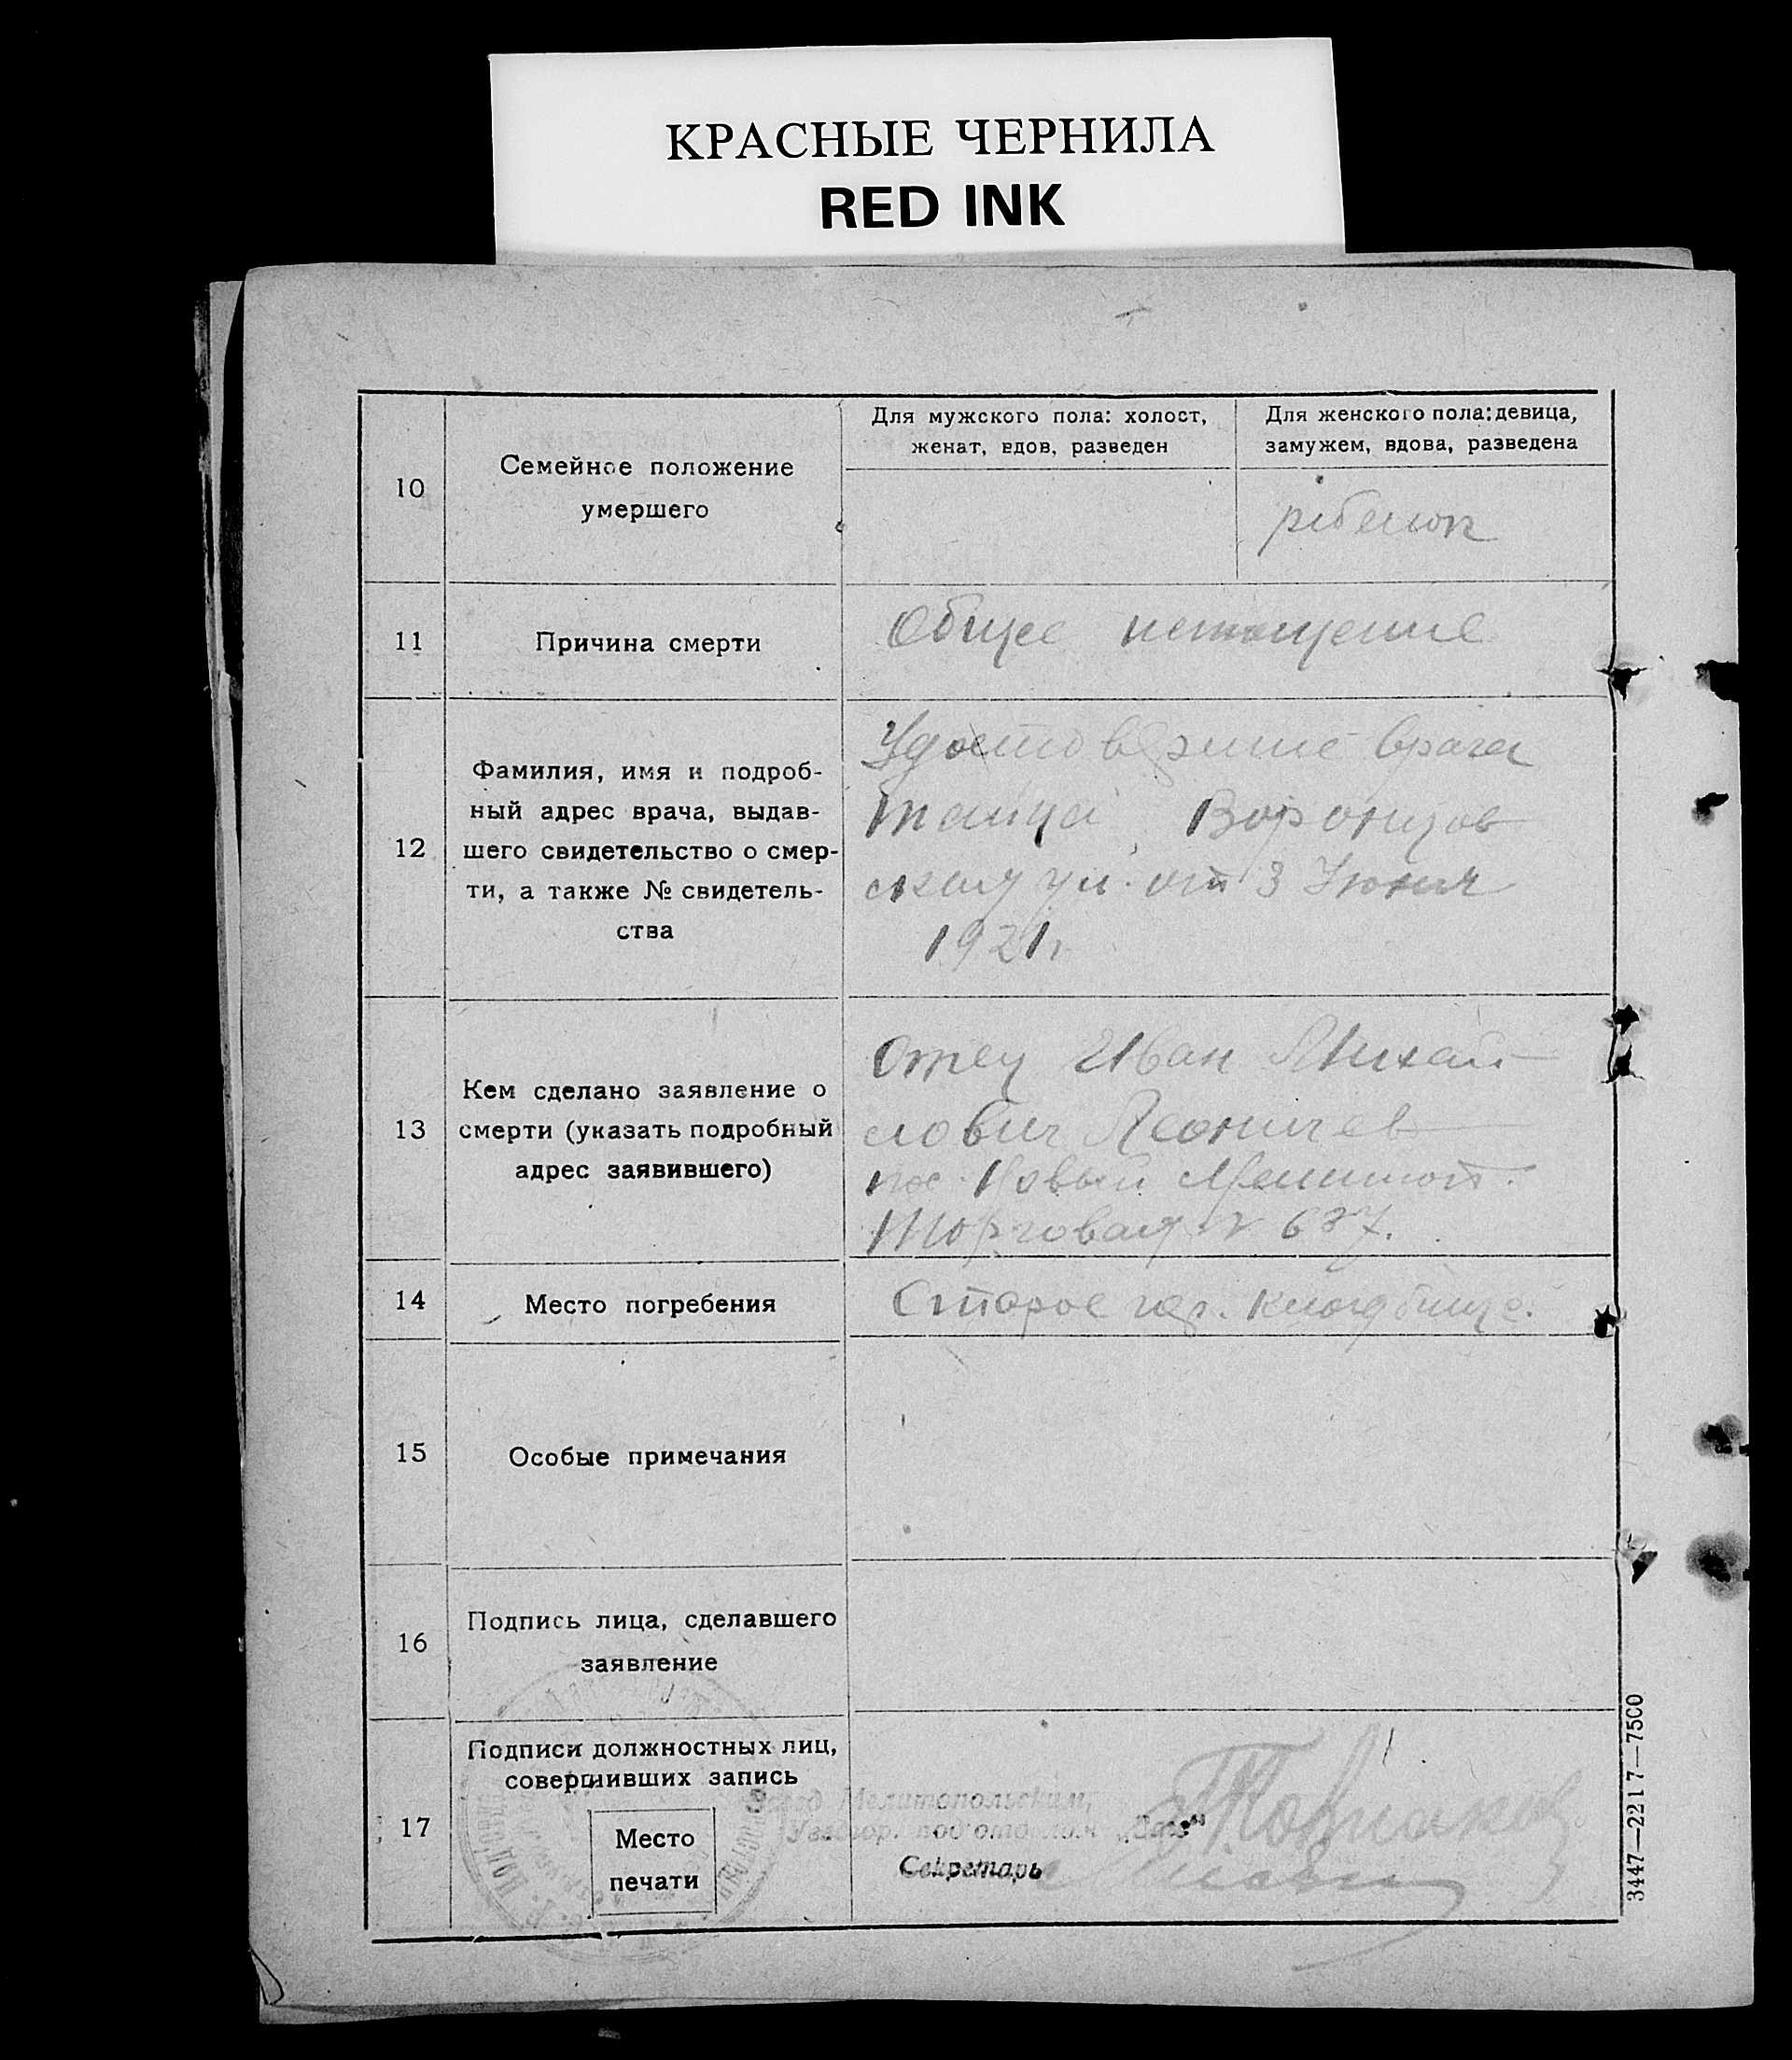 КРАСНЫЕ ЧЕРНИЛА
RED INK
10
Семейное положение
умершего
Для мужского пола: холост,
женат, вдов, разведен
Для женского пола: девица,
замужем, вдова, разведена
ребенок
11
Причина смерти
Общее истощение
12
Фамилия, имя и подроб-
ный адрес врача, выдав-
шего свидетельство о смер-
ти, а также № свидетель-
ства
врача
Воронцов
ская ул. от 3 Июня
1921г
13
Кем сделано заявление о
смерти (указать подробный
адрес заявившего)
Отец Иван Михай
лович
пос. Новый Мелитоп.
Торговая № 637.
14
Место погребения
Старое гор. кладбище.
15
Особые примечания
16
Подпись лица, сделавшего
заявление
17
Подписи должностных лиц,
совершивших запись
Место
печати
Завед. Мелитопольским,
Уездгор. под'отделом „Загс"
Секретарь
3447—2217—7500